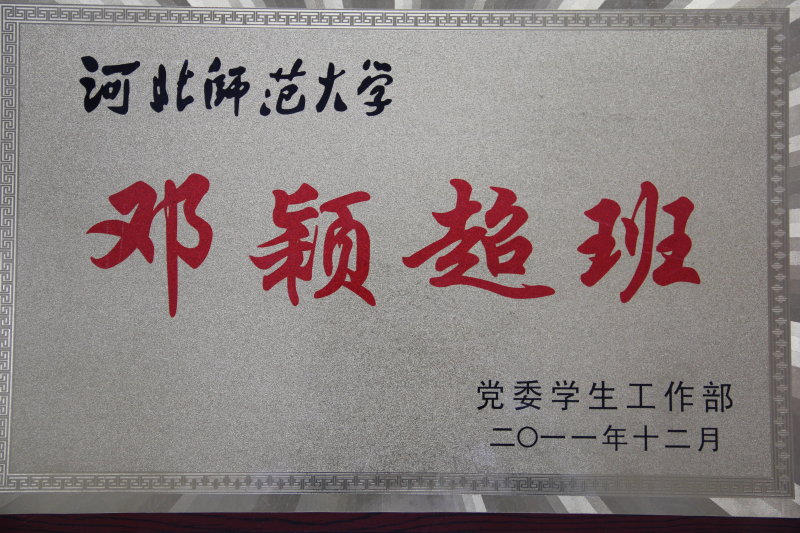 河北师范大学
邓颖超班
党委学生工作部
二〇一一年十二月